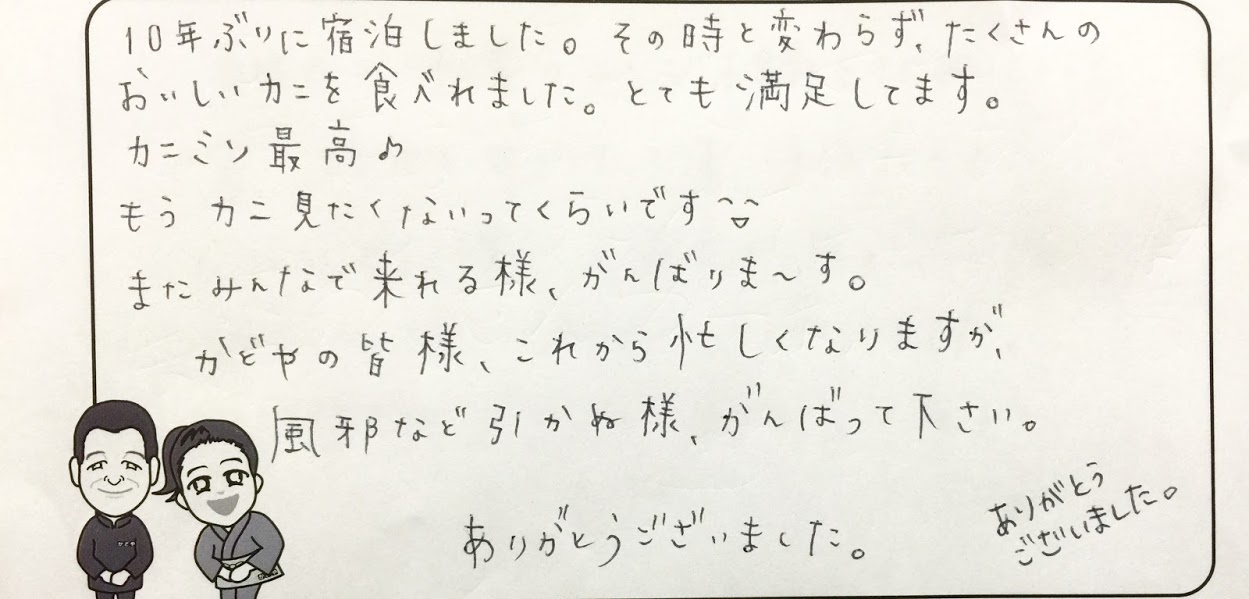 10年ぶりに宿泊しました。その時と変わらず、たくさんの
おいしいカニを食べれました。とても満足してます。
カニミソ最高♪
もうカニ見たくないってくらいです^▽^
またみんなで来れる様、がんばりま~す。
かどやの皆様、これから忙しくなりますが、
風邪など引かぬ様、がんばって下さい。
ありがとうございました。
ありがとう
ございました。